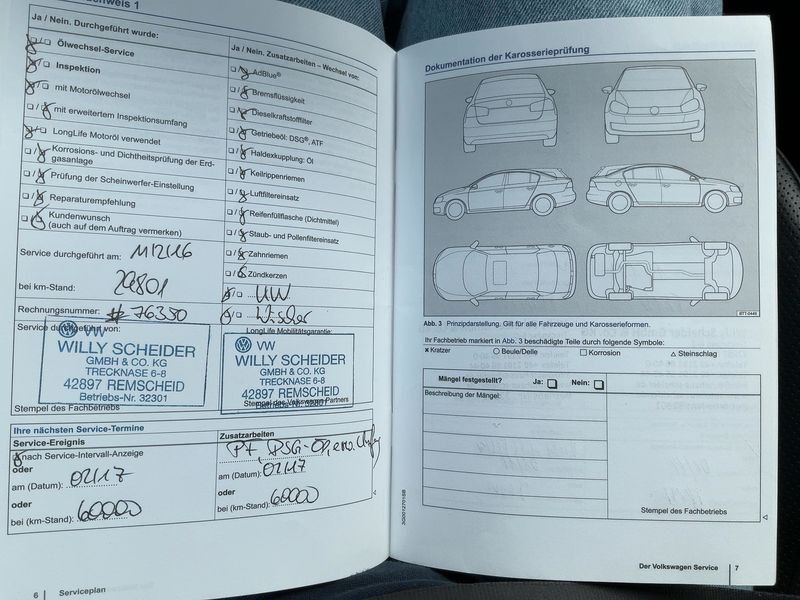 weis 1
Ja / Nein. Durchgeführt wurde:
Ölwechsel-Service
Inspektion
mit Motorölwechsel
mit erweitertem Inspektionsumfang
LongLife Motoröl verwendet
Korrosions- und Dichtheitsprüfung der Erd-
gasanlage
Prüfung der Scheinwerfer-Einstellung
Reparaturempfehlung
Kundenwunsch
(auch auf dem Auftrag vermerken)
Service durchgeführt am:
bei km-Stand:
Rechnungsnummer: # 76350
Service durchgeführt von:
VW
WILLY SCHEIDER
GMBH & CO. KG
TRECKNASE 6-8
42897 REMSCHEID
Betriebs-Nr. 32301
Stempel des Fachbetriebs
Ja / Nein. Zusatzarbeiten – Wechsel von:
AdBlue®
Bremsflüssigkeit
Dieselkraftstofffilter
Getriebeöl: DSG®, ATF
Haldexkupplung: Öl
Keilrippenriemen
Luftfiltereinsatz
Reifenfüllflasche (Dichtmittel)
Staub- und Pollenfiltereinsatz
Zahnriemen
Zündkerzen
Wischer
LongLife Mobilitätsgarantie:
VW
WILLY SCHEIDER
GMBH & CO. KG
TRECKNASE 6-8
42897 REMSCHEID
Betriebs-Nr. 32301
Stempel des Volkswagen Partners
Ihre nächsten Service-Termine
Service-Ereignis
nach Service-Intervall-Anzeige
oder
am (Datum): 02/17
oder
bei (km-Stand): 60000
Zusatzarbeiten
am (Datum): 02/17
oder
bei (km-Stand): 60000
6 Serviceplan
Dokumentation der Karosserieprüfung
BTT-0448
Abb. 3 Prinzipdarstellung. Gilt für alle Fahrzeuge und Karosserieformen.
Ihr Fachbetrieb markiert in Abb. 3 beschädigte Teile durch folgende Symbole:
x Kratzer
Beule/Delle
Korrosion
Steinschlag
Mängel festgestellt? Ja: Nein:
Beschreibung der Mängel:
Stempel des Fachbetriebs
3Q0012701SB
Der Volkswagen Service 7